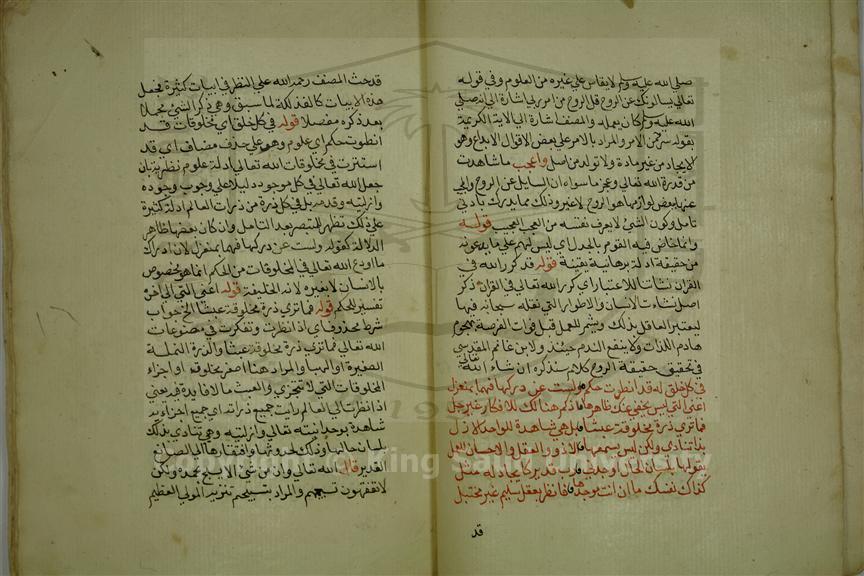 صلى الله عليه وسلم لا يقاس على غيره من العلوم وفي قوله
تعالى يسألونك عن الروح قل الروح من امر ربي اشارة الى انه صلى
الله عليه وسلم كان يعلمه والمصنف اشارة الى الآية الكريمة
بقوله سر من الامر والمراد بالامر على بعض الاقوال الابداع وهو
الايجاد من غير مادة ولا تولد من اصل واعجب ما شاهدت
من قدرة الله تعالى وعجز ما سواه ان السايل عن الروح
عنها بعض لوازمها هو الروح لا غير وذلك مما يدرك بادني
تامل وكون الشيء لا يعرف نفسه من العجب العجيب قوله
وانما خاض فيه القوم بالجدل اي ليس لهم على ما يدعونه
من حقيقة ادلة برهانية يقينية قوله قد كرر الله في
القرآن نشاتنا للاعتبار اي كرر الله تعالى في القرآن ذكر
اصل نشات الانسان والاطوار التي نقله سبحانه فيها
ليعتبر العاقل بذلك ويشمر للعمل قبل فوات الفرصة بهجوم
هادم اللذات ولا ينفع الندم حينئذ ولابن غانم المقدسي
في تحقيق حقيقة الروح كلام سنذكره ان شاء الله تعالى
في كل خلق له قد انطوت حكم ولست عن دركها فيها بمنعزل
اعنى التي ليس يخفى عنك ظاهرها ما ذكر هنالك للافكار غير جلي
فما ترى ذرة مخلوقة عبثا بل هي شاهدة للواحد الازلي
بذا تنادي ولكن ليس يسمعها الا ذوو العقل والاحسان للعمل
يقولها بلسان الحال اوجدني قدير بلا مثل
كذاك نفسك ما ان انت موجدها فانظر بعقل سليم غير مختبل
قد
قد حث المصنف رحمه الله على النظر في ابيات كثيرة فجعل
هذه الابيات كالفذلكة لما سبق وهو ذكر الشيء مجملا
بعد ذكره مفصلا قوله في كل خلق اي مخلوقات قد
انطوت حكم اي علوم وهو على حذف مضاف اي قد
استترت في مخلوقات الله تعالى ادلة علوم نظرية بان
جعل الله تعالى في كل موجود دليلا على وجوب وجوده
وازليته وقدمه بل في كل ذرة من ذرات العالم ادلة كثيرة
على ذلك تظهر للمتبصر بعد التامل وان كان بعضها ظاهر
الدلالة كقوله ولست عن دركها فيها بمنعزل لان ادراك
ما اودع الله تعالى في المخلوقات من الحكم انما هو مخصوص
بالانسان لا بغيره لانه الخليفة قوله اعنى التي الى اخره
تفسير للحكم قوله فما ترى ذرة مخلوقة عبثا الخ جواب
شرط محذوف اي اذا نظرت وتفكرت في مصنوعات
الله تعالى فما ترى ذرة مخلوقة عبثا والذرة النملة
الصغيرة او الهبا والمراد هنا اصغر مخلوق او اجزاء
المخلوقات التي لا تتجزى والعبث ما لا فايدة فيه يعني
اذا نظرت الى العالم رايت جميع ذراته اي جميع اجزائه
شاهدة بوحدانيته تعالى وازليته وهي تنادي بذلك
بلسان حالها وذلك لحدوثها وافتقارها الى الصانع
القدير قال الله تعالى وان من شيء الا يسبح بحمده ولكن
لا تفقهون تسبيحهم والمراد بتسبيحهم تنزيه المولى العظيم
Copyright © King Saud University